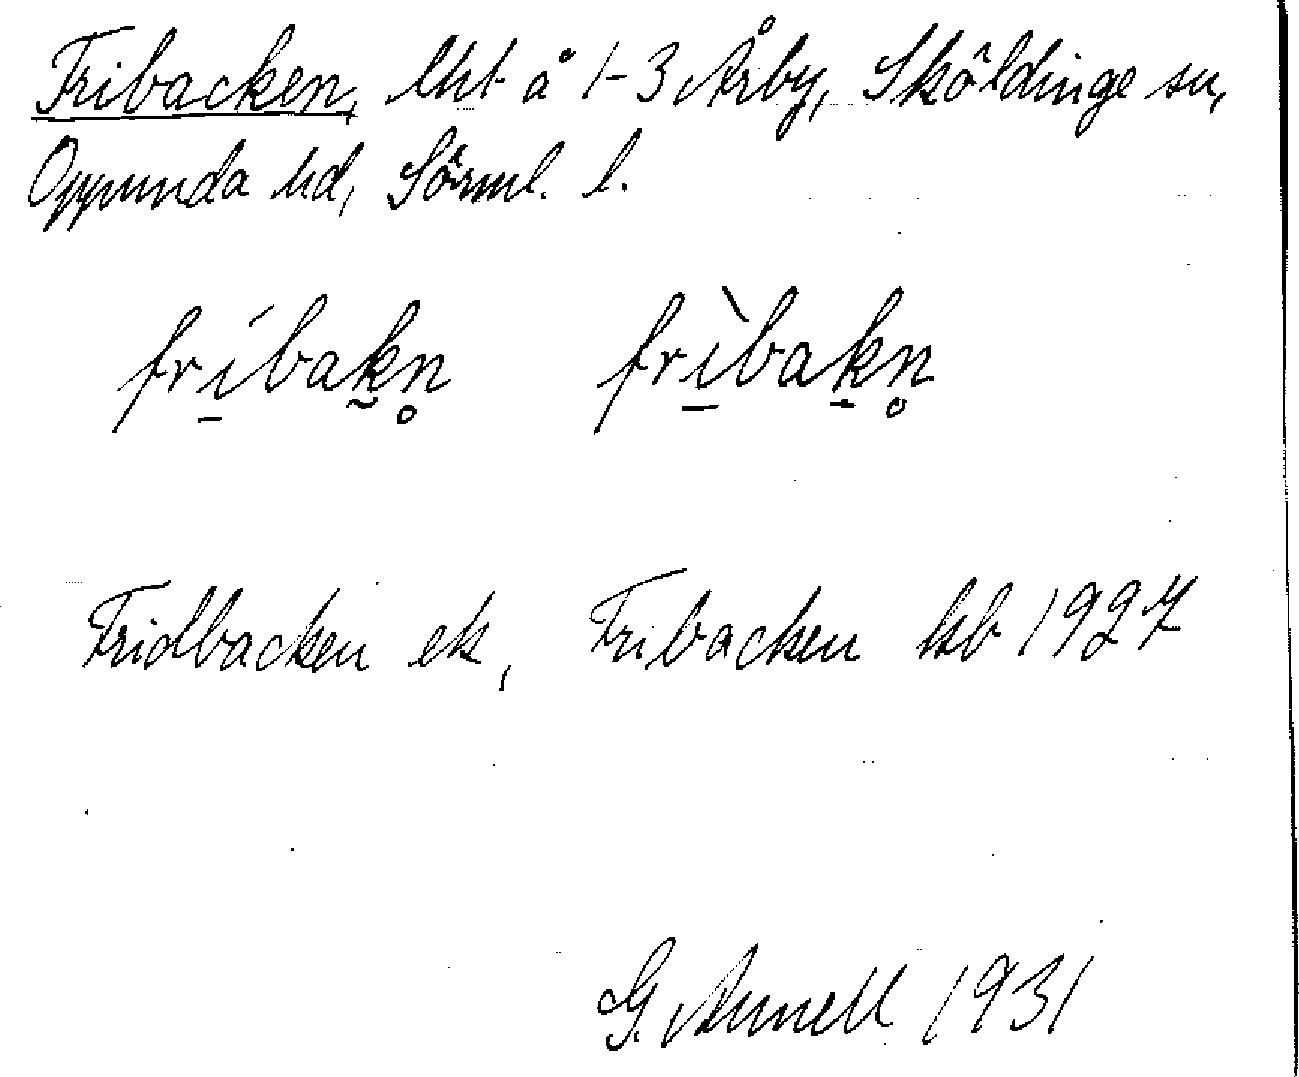 Fribacken, lht å 1-3 Årby, Sköldinge sn,
Oppunda hd, Sörml. l.
frí̱bak̰n̥ frì̱baḵn̥
Fridbacken ek, Fribacken kb 1927
G. Annell 1931